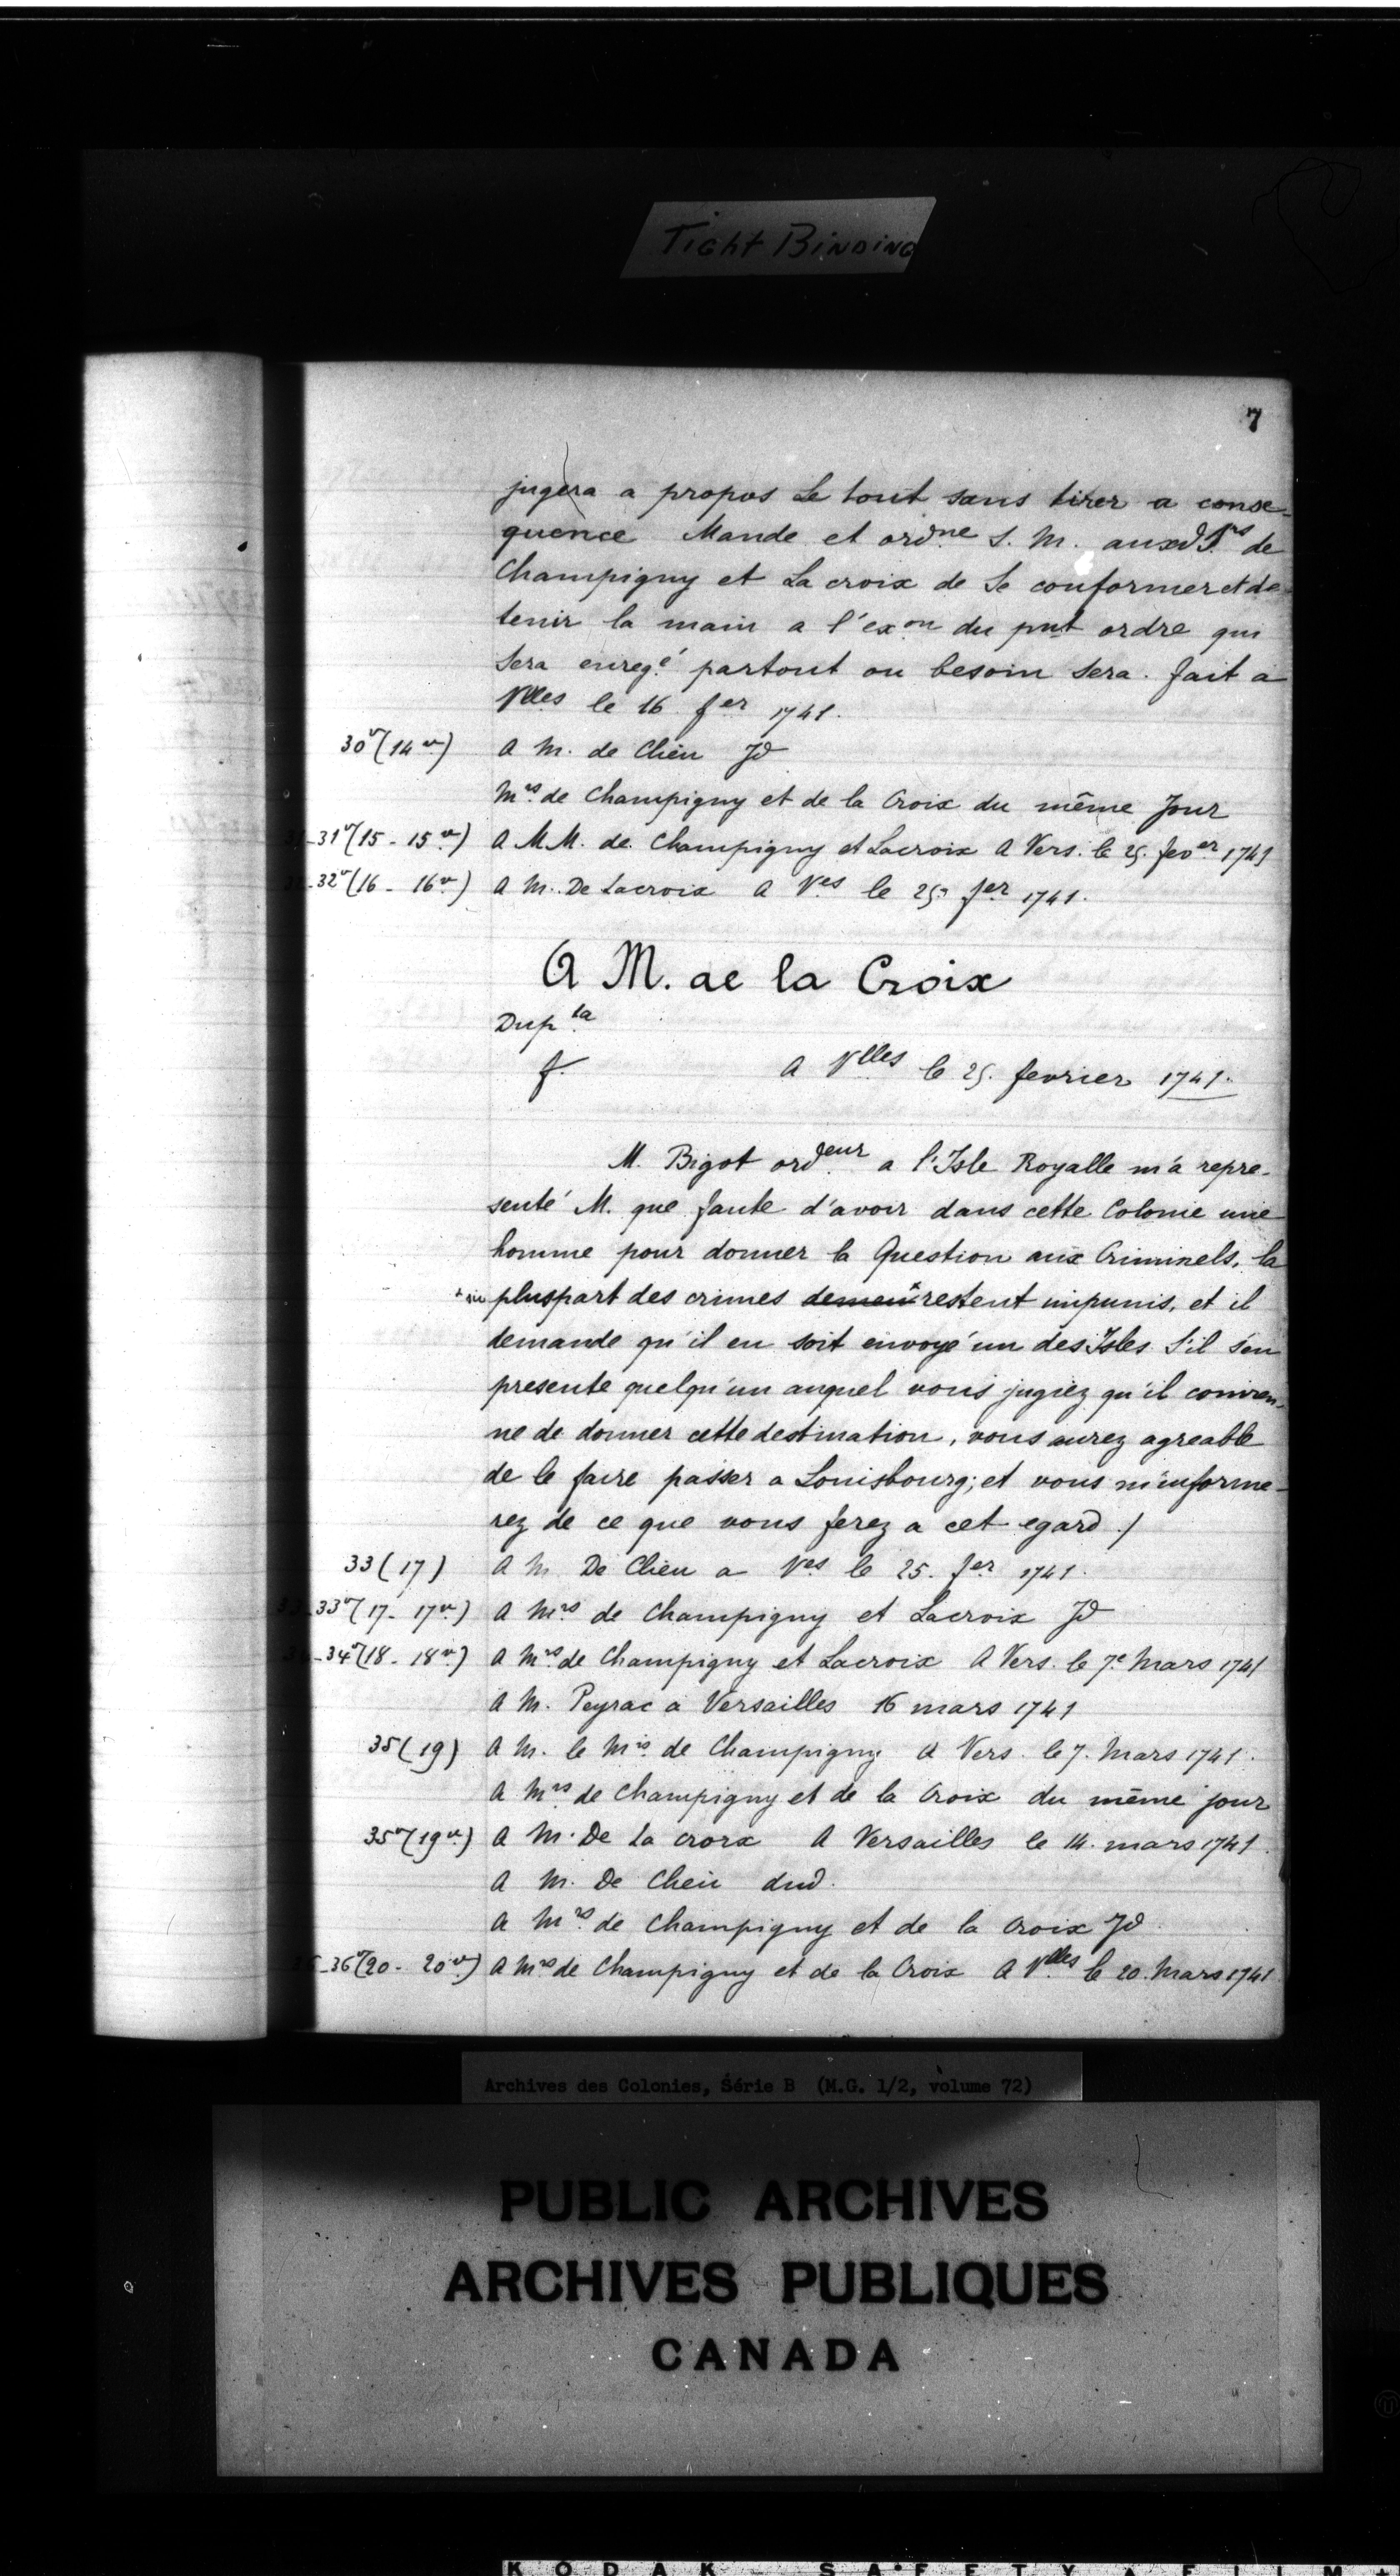 Tight Binding
7
jugera a propos Le tout sans tirer a conse-
quence Mande et ordne S. M. auxd Srs de
Champigny et La croix de Se conformer et de
tenir la main a l'exon du pnt ordre qui
Sera enregé partout ou besoin Sera. fait a
Vlles le 16 fer 1741.
30v (14v) A M. de Clieu Jd
Mrs de Champigny et de la Croix du même Jour
31-31v (15-15v) A MM. de Champigny et Lacroix A Vers. le 25. fever 1741
32v (16-16v) A M. De Lacroix a Ves le 25 fer 1741.
A M. de la Croix
Dupta
f. A Vlles le 25. fevrier 1741.
M. Bigot ordeur a l'Isle Royalle m'a repre-
senté M. que faute d'avoir dans cette Colonie une
homme pour donner la Question aux Criminels, la
pluspart des crimes demeu restent impunis, et il
demande qu'il en soit envoyé un des Isles S'il s'en
presente quelqu'un auquel vous jugiez qu'il convien-
ne de donner cette destination, vous aurez agreable
de le faire passer a Louisbourg; et vous m'informe-
rez de ce que vous ferez a cet egard ./
33 (17) A M De Clieu a Ves le 25. fer 1741.
33-33v (17-17v) A Mrs de Champigny et Lacroix Jd
34-34v (18-18v) A Mrs de Champigny et Lacroix A Vers. le 7e Mars 1741
A M. Peyrac a Versailles 16 mars 1741
35 (19) A M. le Mis de Champigny A Vers. le 7. Mars 1741.
A Mrs de Champigny et de la Croix du même jour
35v (19v) A M. De La croix A Versailles le 14. mars 1741.
A M. De Clieu dud.
A Mrs de Champigny et de la Croix Jd
36-36v (20-20v) A Mrs de Champigny et de la Croix A Vlles le 20. Mars 1741
Archives des Colonies, Série B (M.G. 1/2, volume 72)
PUBLIC ARCHIVES
ARCHIVES PUBLIQUES
CANADA
KODAK SAFETY FILM